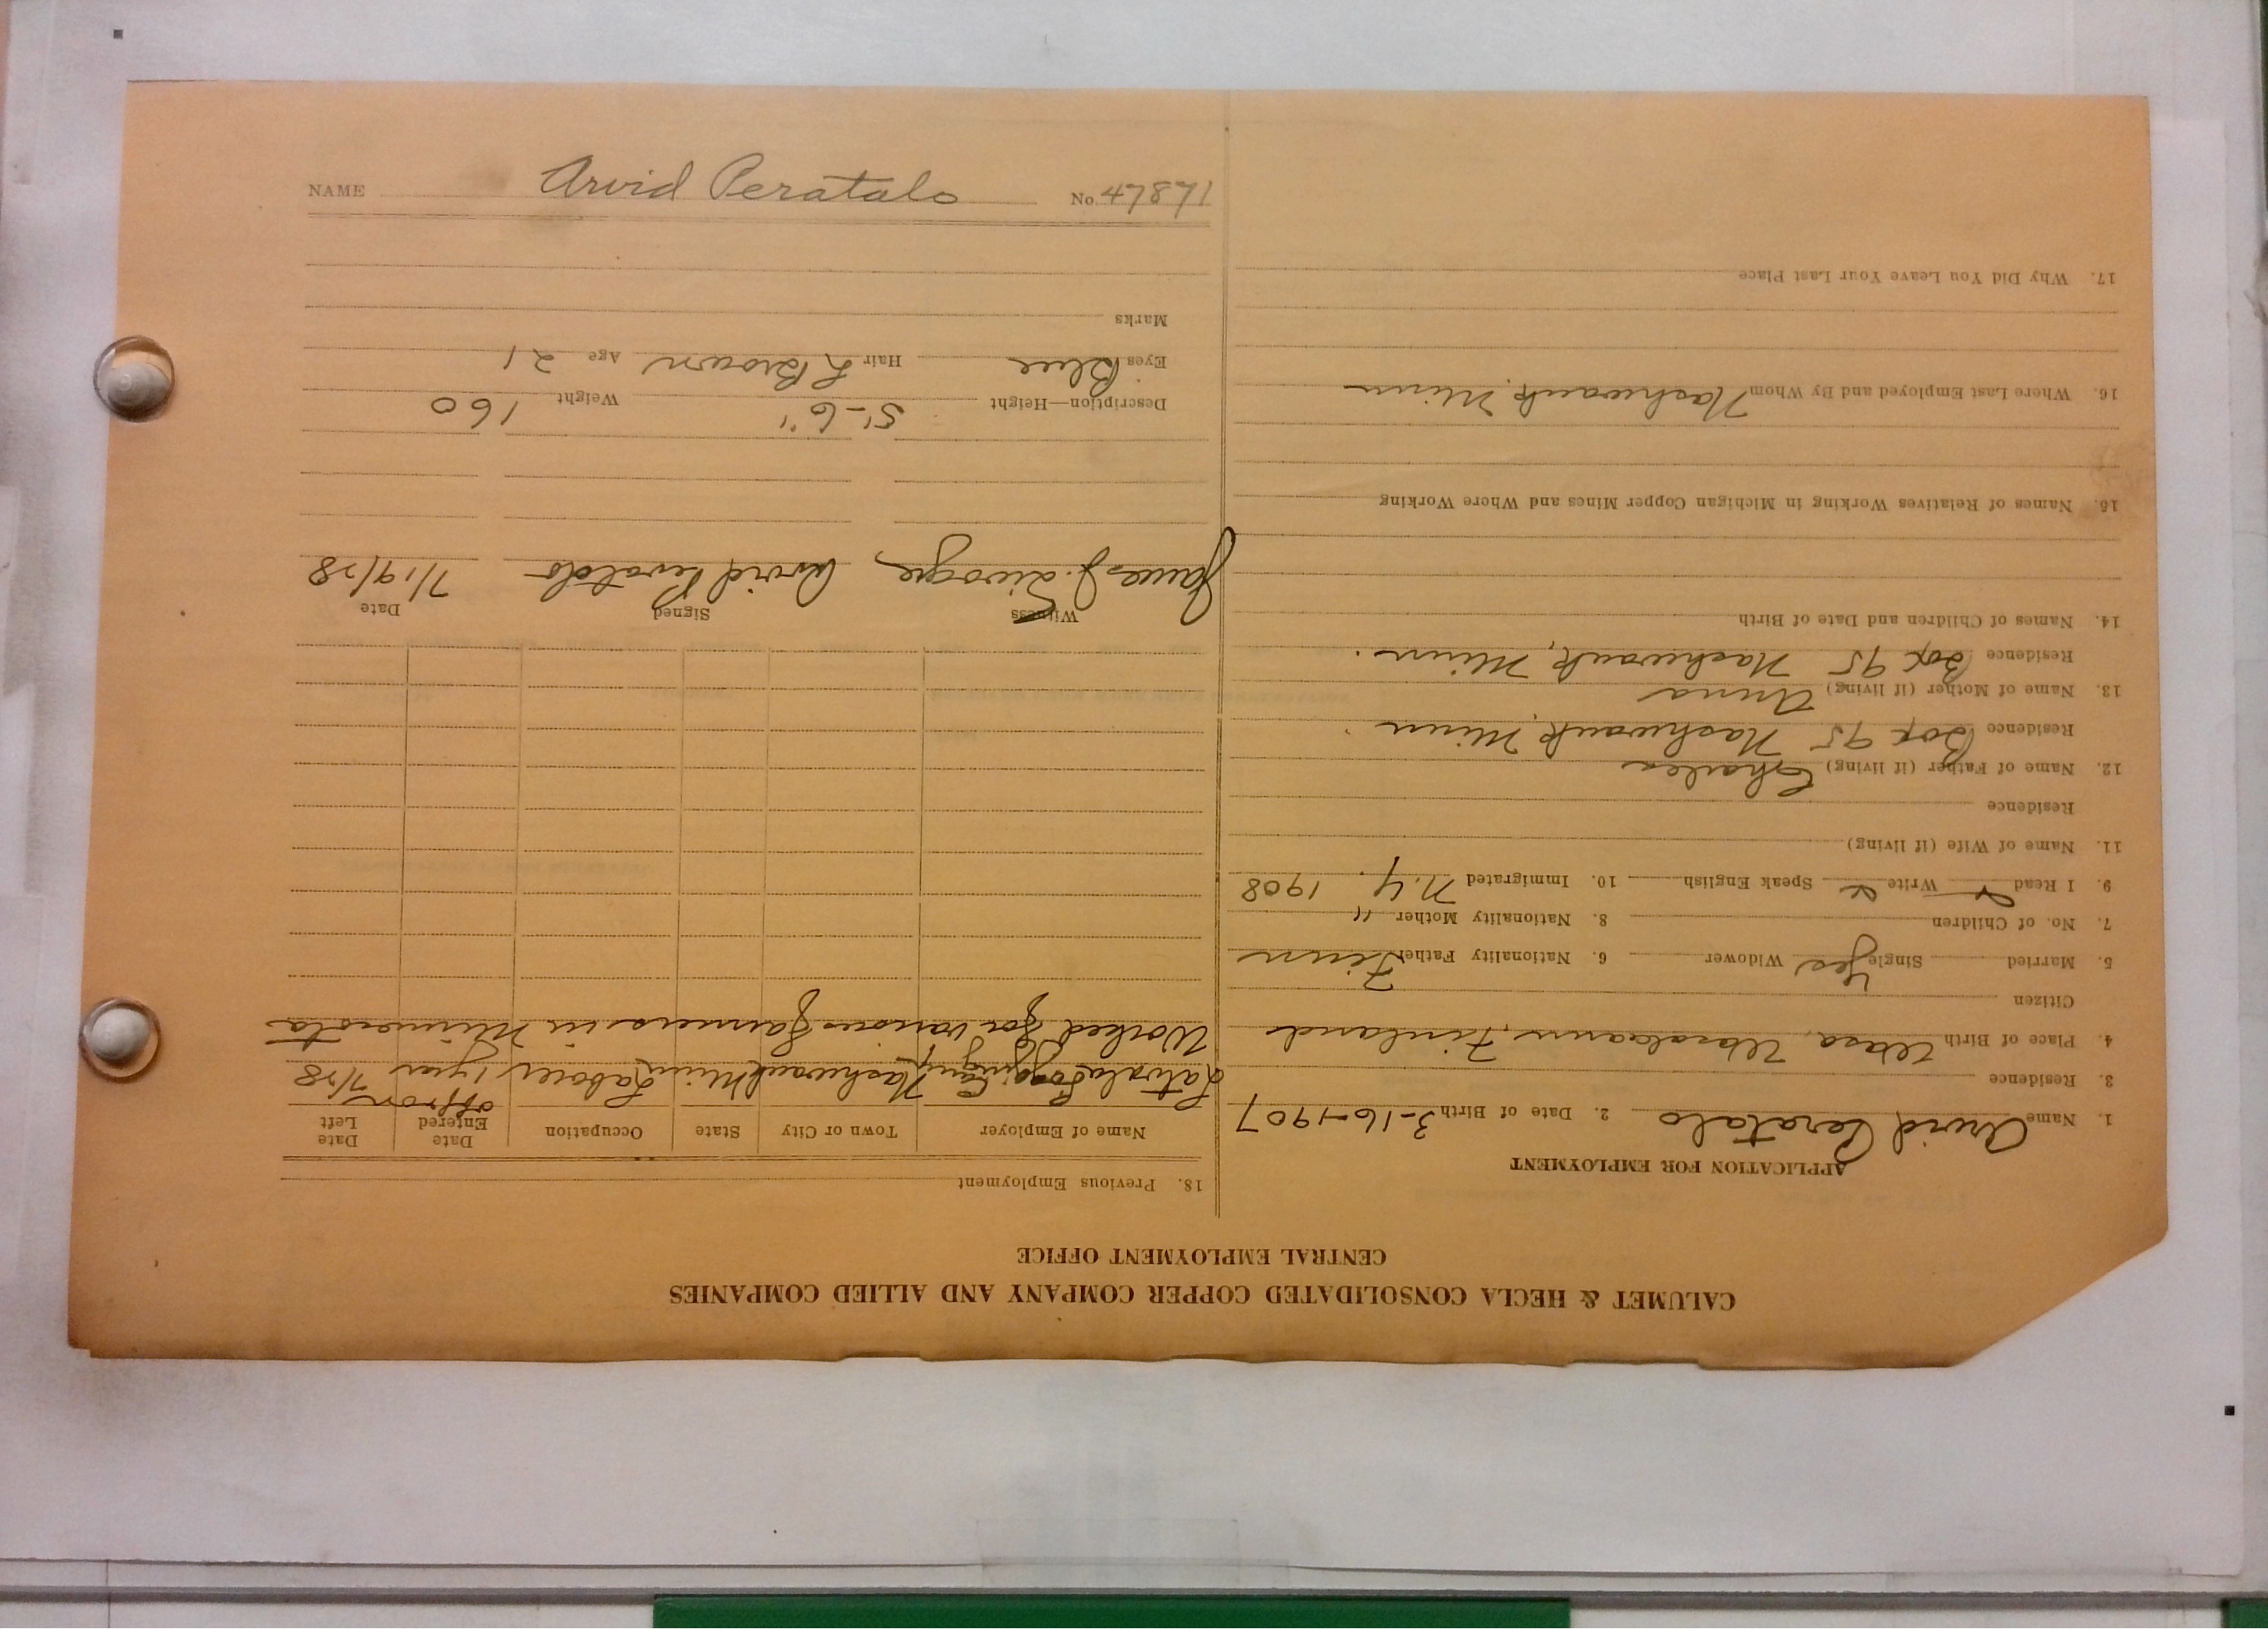 CALUMET & HECLA CONSOLIDATED COPPER COMPANY AND ALLIED COMPANIES
CENTRAL EMPLOYMENT OFFICE
APPLICATION FOR EMPLOYMENT
1. Name Arvid Peratalo 2. Date of Birth 3-16-1907
3. Residence
4. Place of Birth Wasa, Finland
Citizen
5. Married Single Yes Widower 6. Nationality Father Finn
7. No. of Children 8. Nationality Mother "
9. I Read Write Speak English 10. Immigrated N.Y. 1908
11. Name of Wife (if living)
Residence
12. Name of Father (if living) Charles
Residence Box 95 Nashwauk, Minn
13. Name of Mother (if living) Anna
Residence Box 95 Nashwauk, Minn.
14. Names of Children and Date of Birth
15. Names of Relatives Working in Michigan Copper Mines and Where Working
16. Where Last Employed and By Whom Nashwauk, Minn
17. Why Did You Leave Your Last Place
18. Previous Employment
Name of Employer Town or City State Occupation Date Entered Date Left
Nashwauk Minn Laborer off & on 1 year 7/28
Worked for various farmers in Minnesota
Witness Signed Date
James J. Arvid Peratalo 7/19/28
Description—Height 5'-6" Weight 160
Eyes Blue Hair L Brown Age 21
Marks
NAME Arvid Peratalo No. 47871